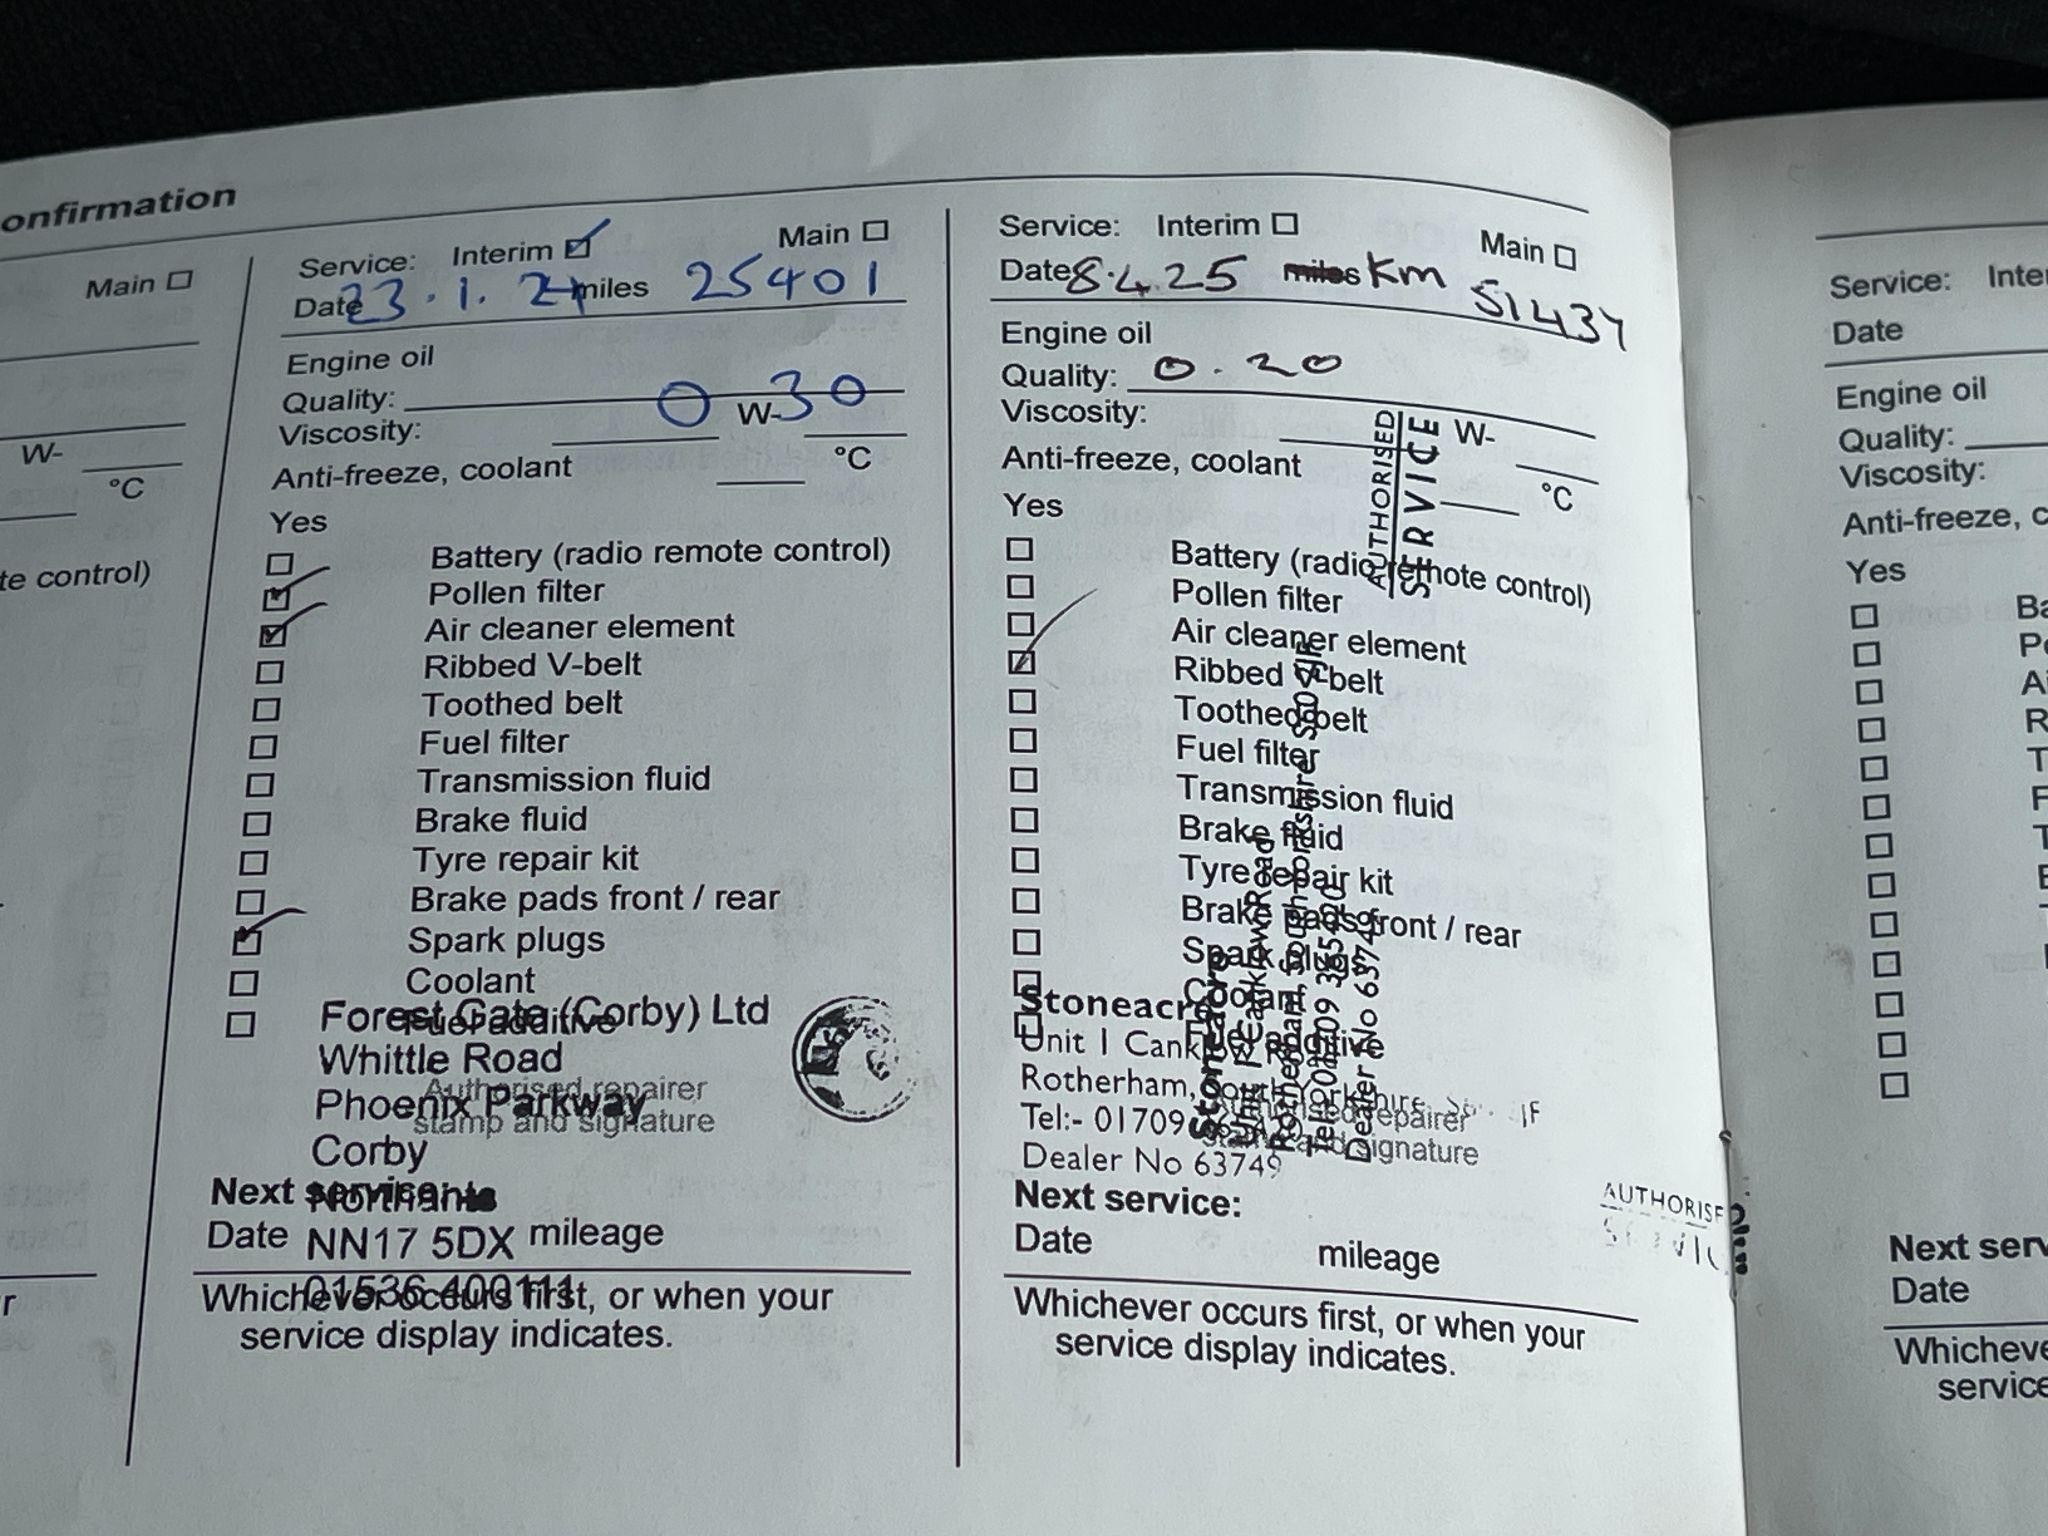 onfirmation
Main
W-
°C
te control)
r
Service: Interim Main
Date 23.1.24 miles 25401
Engine oil
Quality:
Viscosity: 0 W-30
Anti-freeze, coolant °C
Yes
Battery (radio remote control)
Pollen filter
Air cleaner element
Ribbed V-belt
Toothed belt
Fuel filter
Transmission fluid
Brake fluid
Tyre repair kit
Brake pads front / rear
Spark plugs
Coolant
Fuel additive
Forest Gate (Corby) Ltd
Whittle Road
Phoenix Parkway
Corby
Northants
NN17 5DX
01536 400111
Authorised repairer
stamp and signature
Next service:
Date mileage
Whichever occurs first, or when your
service display indicates.
Service: Interim Main
Date 8.4.25 miles Km 51434
Engine oil
Quality: 0.20
Viscosity: W-
Anti-freeze, coolant °C
Yes
Battery (radio remote control)
Pollen filter
Air cleaner element
Ribbed V-belt
Toothed belt
Fuel filter
Transmission fluid
Brake fluid
Tyre repair kit
Brake pads front / rear
Spark plugs
Coolant
Fuel additive
AUTHORISED
SERVICE
Stoneacre
Unit 1 Canklow Road
Rotherham, South Yorkshire
Tel:- 01709 365420
Dealer No 63749
Stoneacre
Unit 1 Canklow Road
Rotherham, South Yorkshire
Tel:- 01709 365420
Dealer No 63749
Authorised repairer
stamp and signature
AUTHORISE
Next service:
Date mileage
Whichever occurs first, or when your
service display indicates.
Service: Inter
Date
Engine oil
Quality:
Viscosity:
Anti-freeze, c
Yes
Ba
Po
Ai
R
T
F
T
B
T
Next serv
Date
Whicheve
service